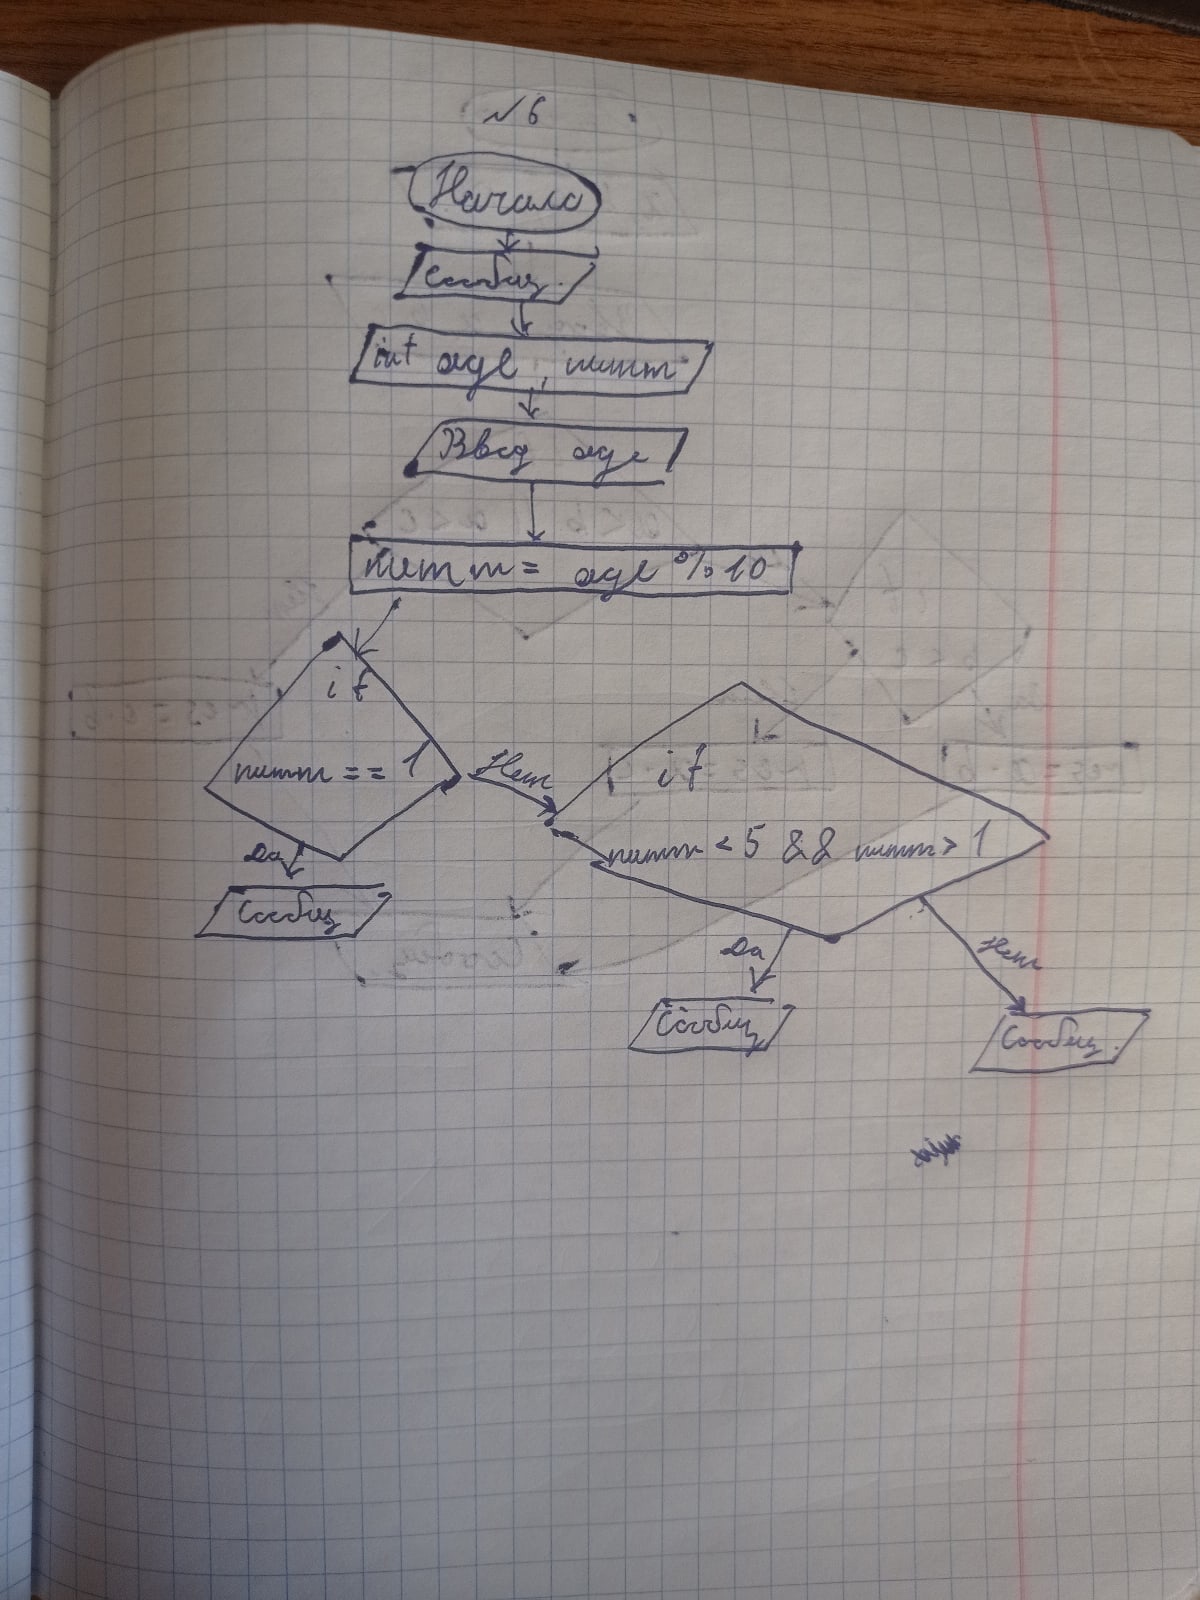 №6
Начало
Сообщ.
int age, numm
Ввод age
numm = age % 10
if
numm == 1
Нет
if
numm < 5 && numm > 1
Да
Сообщ
Да
Нет
Сообщ
Сообщ.